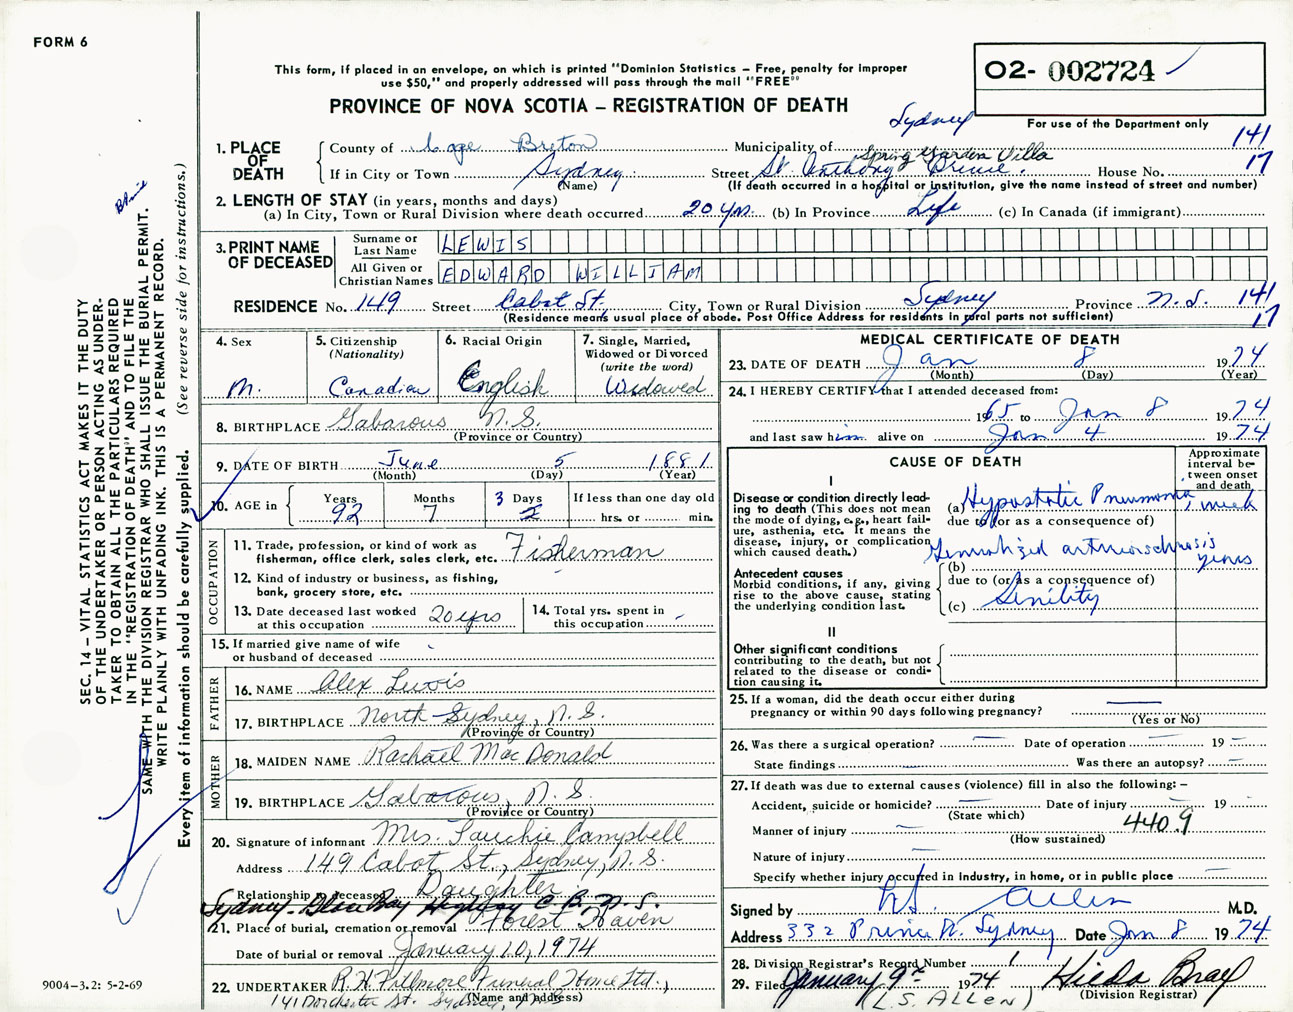 FORM 6
O2- 002724
This form, if placed in an envelope, on which is printed "Dominion Statistics – Free, penalty for improper
use $50," and properly addressed will pass through the mail "FREE"
PROVINCE OF NOVA SCOTIA – REGISTRATION OF DEATH
For use of the Department only
Sydney 141
1. PLACE OF DEATH County of Cape Breton Municipality of
Spring Garden Villa 17
If in City or Town Sydney (Name) Street St. Anthony Drive. House No.
(If death occurred in a hospital or institution, give the name instead of street and number)
2. LENGTH OF STAY (in years, months and days)
(a) In City, Town or Rural Division where death occurred 20 yrs. (b) In Province Life (c) In Canada (if immigrant)
3. PRINT NAME OF DECEASED Surname or Last Name LEWIS
All Given or Christian Names EDWARD WILLIAM
RESIDENCE No. 149 Street Cabot St. City, Town or Rural Division Sydney Province N.S. 141
(Residence means usual place of abode. Post Office Address for residents in rural parts not sufficient) 17
4. Sex M.
5. Citizenship (Nationality) Canadian
6. Racial Origin English
7. Single, Married, Widowed or Divorced (write the word) Widowed
8. BIRTHPLACE Gabarous N.S.
(Province or Country)
9. DATE OF BIRTH June 5 1881
(Month) (Day) (Year)
10. AGE in Years 92 Months 7 Days 3 If less than one day old
hrs. or min.
OCCUPATION
11. Trade, profession, or kind of work as
fisherman, office clerk, sales clerk, etc. Fisherman
12. Kind of industry or business, as fishing,
bank, grocery store, etc.
13. Date deceased last worked
at this occupation 20 yrs
14. Total yrs. spent in
this occupation -
15. If married give name of wife
or husband of deceased
FATHER
16. NAME Alex Lewis
17. BIRTHPLACE North Sydney, N.S.
(Province or Country)
MOTHER
18. MAIDEN NAME Rachael MacDonald
19. BIRTHPLACE Gabarous, N.S.
(Province or Country)
20. Signature of informant Mrs. Lauchie Campbell
Address 149 Cabot St., Sydney, N.S.
Relationship to deceased Daughter
Sydney - Glace Bay Highway C.B. N.S.
21. Place of burial, cremation or removal Forest Haven
Date of burial or removal January 10, 1974
22. UNDERTAKER R.H. Fillmore Funeral Home Ltd.,
141 Dorchester St. Sydney, N.S.
(Name and address)
MEDICAL CERTIFICATE OF DEATH
23. DATE OF DEATH Jan 8 1974
(Month) (Day) (Year)
24. I HEREBY CERTIFY that I attended deceased from:
1965 to Jan 8 1974
and last saw him alive on Jan 4 1974
CAUSE OF DEATH
Approximate
interval be-
tween onset
and death
I
Disease or condition directly lead-
ing to death (This does not mean
the mode of dying, e.g., heart fail-
ure, asthenia, etc. It means the
disease, injury, or complication
which caused death.)
(a) Hypostatic Pneumonia 1 week
due to (or as a consequence of)
Generalized arteriosclerosis
(b) years
due to (or as a consequence of)
(c) Senility
Antecedent causes
Morbid conditions, if any, giving
rise to the above cause, stating
the underlying condition last.
II
Other significant conditions
contributing to the death, but not
related to the disease or condi-
tion causing it.
25. If a woman, did the death occur either during
pregnancy or within 90 days following pregnancy?
(Yes or No)
26. Was there a surgical operation? — Date of operation — 19 —
State findings — Was there an autopsy? —
27. If death was due to external causes (violence) fill in also the following: –
Accident, suicide or homicide? — Date of injury — 19 —
(State which)
Manner of injury — 440.9
(How sustained)
Nature of injury —
Specify whether injury occurred in industry, in home, or in public place —
Signed by L.S. Allen M.D.
Address 332 Prince St. Sydney Date Jan 8 1974
28. Division Registrar's Record Number 1
29. Filed January 9th 1974 Hilda Bray
(L.S. ALLEN) (Division Registrar)
9004–3.2: 5-2-69
SEC. 14 – VITAL STATISTICS ACT MAKES IT THE DUTY
OF THE UNDERTAKER OR PERSON ACTING AS UNDER-
TAKER TO OBTAIN ALL THE PARTICULARS REQUIRED
IN THE "REGISTRATION OF DEATH" AND TO FILE THE
SAME WITH THE DIVISION REGISTRAR WHO SHALL ISSUE THE BURIAL PERMIT.
WRITE PLAINLY WITH UNFADING INK. THIS IS A PERMANENT RECORD.
Every item of information should be carefully supplied. (See reverse side for instructions.)